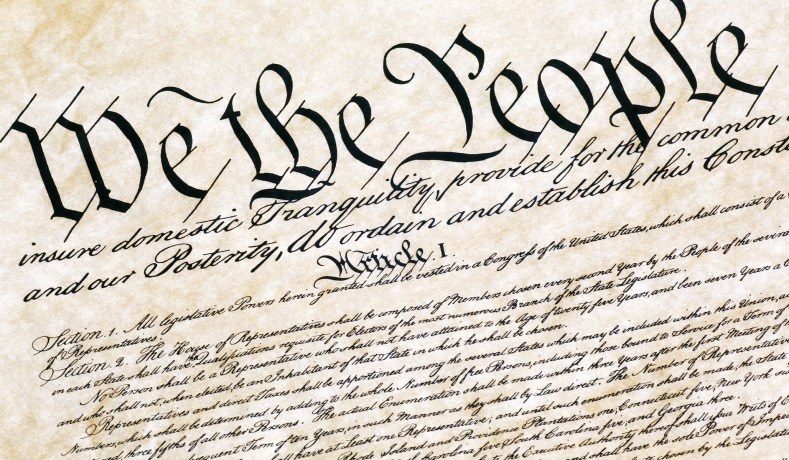 We the People
insure domestic Tranquility, provide for the common
and our Posterity, do ordain and establish this Const
Article. I.
Section. 1. All legislative Powers herein granted shall be vested in a Congress of the United States, which shall consist of a
of Representatives.
Section. 2. The House of Representatives shall be composed of Members chosen every second Year by the People of the several
in each State shall have the Qualifications requisite for Electors of the most numerous Branch of the State Legislature.
No Person shall be a Representative who shall not have attained to the Age of twenty five Years, and been seven Years a
and who shall not, when elected, be an Inhabitant of that State in which he shall be chosen.
Representatives and direct Taxes shall be apportioned among the several States which may be included within this Union,
Numbers, which shall be determined by adding to the whole Number of free Persons, including those bound to Service for a Term of
three fifths of all other Persons. The actual Enumeration shall be made within three Years after the first Meeting of
subsequent Term of ten Years, in such Manner as they shall by Law direct. The Number of Representatives
shall have at Least one Representative; and until such enumeration shall be made, the State
Rhode Island and Providence Plantations one, Connecticut five, New York
Carolina five, South Carolina five, and Georgia three.
the Executive Authority thereof shall issue Writs of
shall have the sole Power of
chosen by the